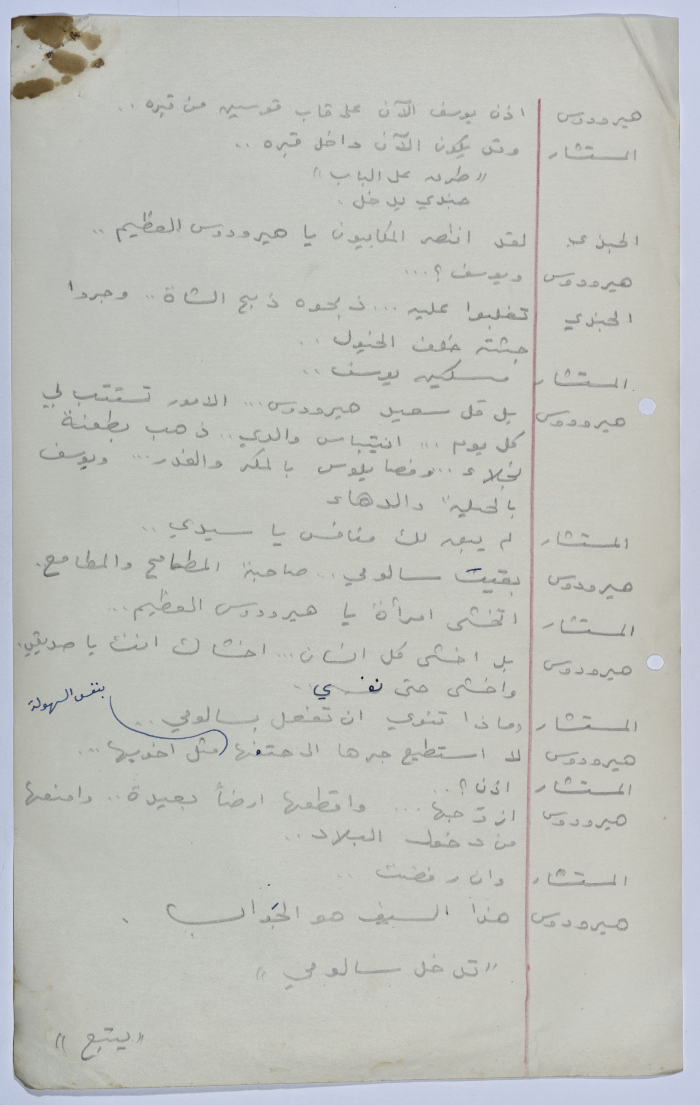 هيرودوس اذن يوسف الآن على قاب قوسين من قبره ..
المستشار وقد يكون الآن داخل قبره ..
"طرق على الباب"
جندي يدخل .
الجندي لقد انتصر المكابيون يا هيرودوس العظيم ..
هيرودوس ويوسف ؟ ...
الجندي تغلبوا عليه ... ذبحوه ذبح الشاة .. وجروا
جثته خلف الخيول ..
المستشار مسكين يوسف ..
هيرودوس بل قل سعيد هيرودوس ... الامور تستتب لي
كل يوم ... انتيباس والدي .. ذهب بطعنة
نجلاء .. وفصايلوس بالمكر والغدر ... ويوسف
بالحيلة والدهاء
المستشار لم يبق لك منافس يا سيدي ..
هيرودوس بقيت سالومي .. صاحبة المطامح والمطامع .
المستشار اتخشى امرأة يا هيرودوس العظيم ...
هيرودوس بل اخشى كل انسان ... اخشاك انت يا صديقي .
واخشى حتى نفسي ..
المستشار وماذا تنوي ان تفعل بسالومي ...
بنفس السهولة
هيرودوس لا استطيع جرها الى حتفها مثل اخويها ...
المستشار اذن ؟ ..
هيرودوس ازوجها ... واقطعها ارضاً بعيدة .. وامنعها
من دخول البلاد ..
المستشار وان رفضت ..
هيرودوس هذا السيف هو الجَواب .
"تدخل سالومي"
"يتبع"